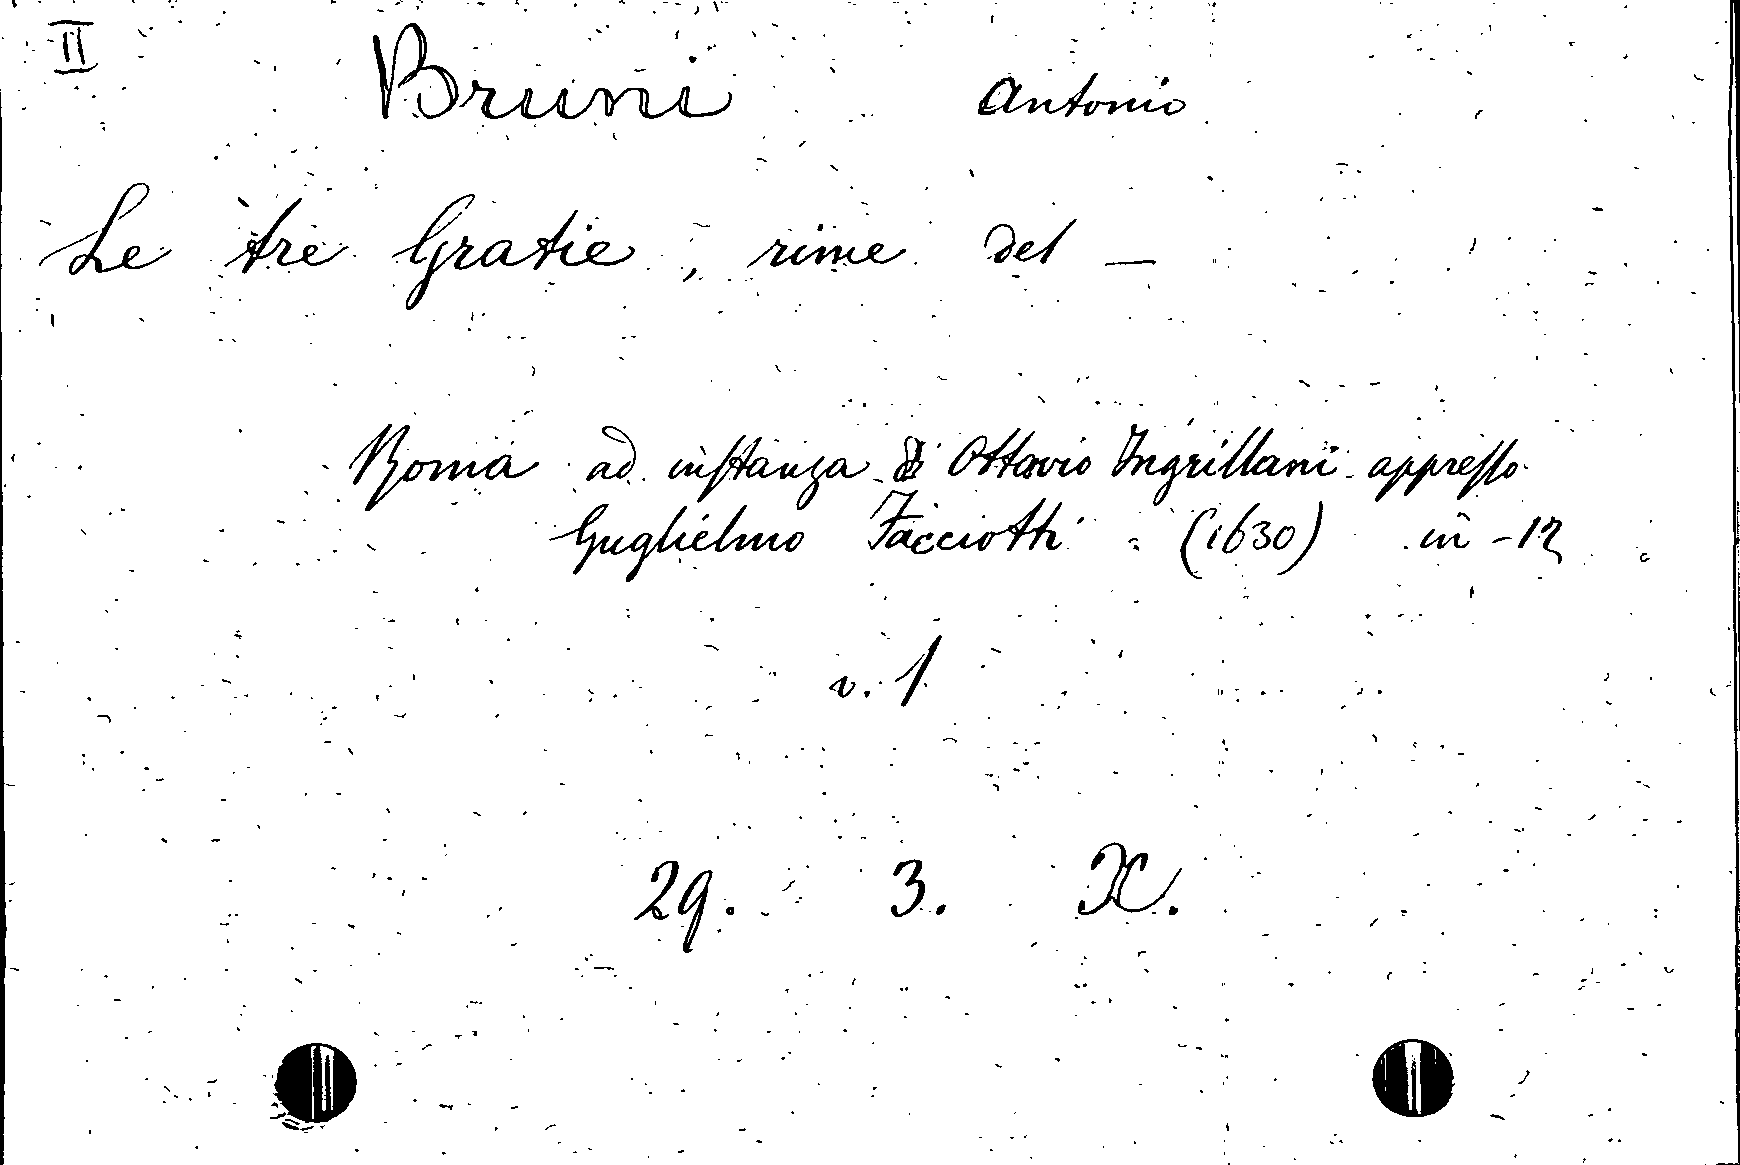 II
Bruni Antonio
Le tre Gratie, rime del —
Roma ad instanza di Ottavio Ingrillani appresso
Guglielmo Facciotti. (1630) in-12
v. 1
29. 3. K.